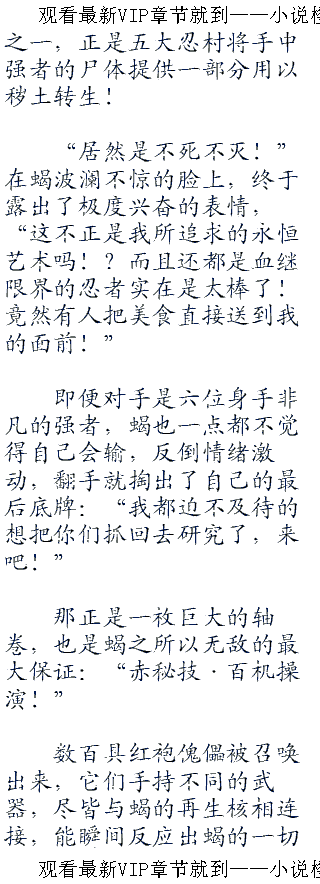 观看最新VIP章节就到——小说检
之一，正是五大忍村将手中
强者的尸体提供一部分用以
秽土转生！
“居然是不死不灭！”
在蝎波澜不惊的脸上，终于
露出了极度兴奋的表情，
“这不正是我所追求的永恒
艺术吗！？而且还都是血继
限界的忍者实在是太棒了！
竟然有人把美食直接送到我
的面前！”
即便对手是六位身手非
凡的强者，蝎也一点都不觉
得自己会输，反倒情绪激
动，翻手就掏出了自己的最
后底牌：“我都迫不及待的
想把你们抓回去研究了，来
吧！”
那正是一枚巨大的轴
卷，也是蝎之所以无敌的最
大保证：“赤秘技·百机操
演！”
数百具红袍傀儡被召唤
出来，它们手持不同的武
器，尽皆与蝎的再生核相连
接，能瞬间反应出蝎的一切
观看最新VIP章节就到——小说检